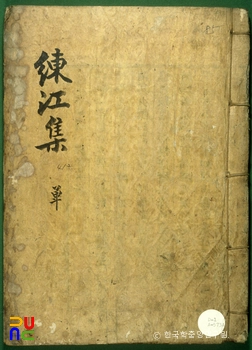 練江集
單
© 한국학중앙연구원